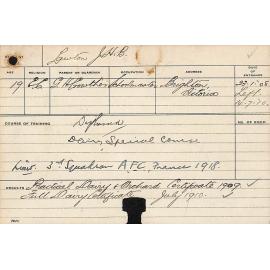 J.H.C.
AGE RELIGION PARENT OR GUARDIAN OCCUPATION ADDRESS DATE OF ENTRANCE
19 C.E. Schoolmaster Brighton Victoria
Left
COURSE OF TRAINING Diploma NO. OF ROOM
Dairy Special Course
Lieut. 3rd Squadron A.F.C. France 1918.
RESULTS Practical Dairy & Orchard Certificate 1909.
Full Dairy Certificate July 1910.